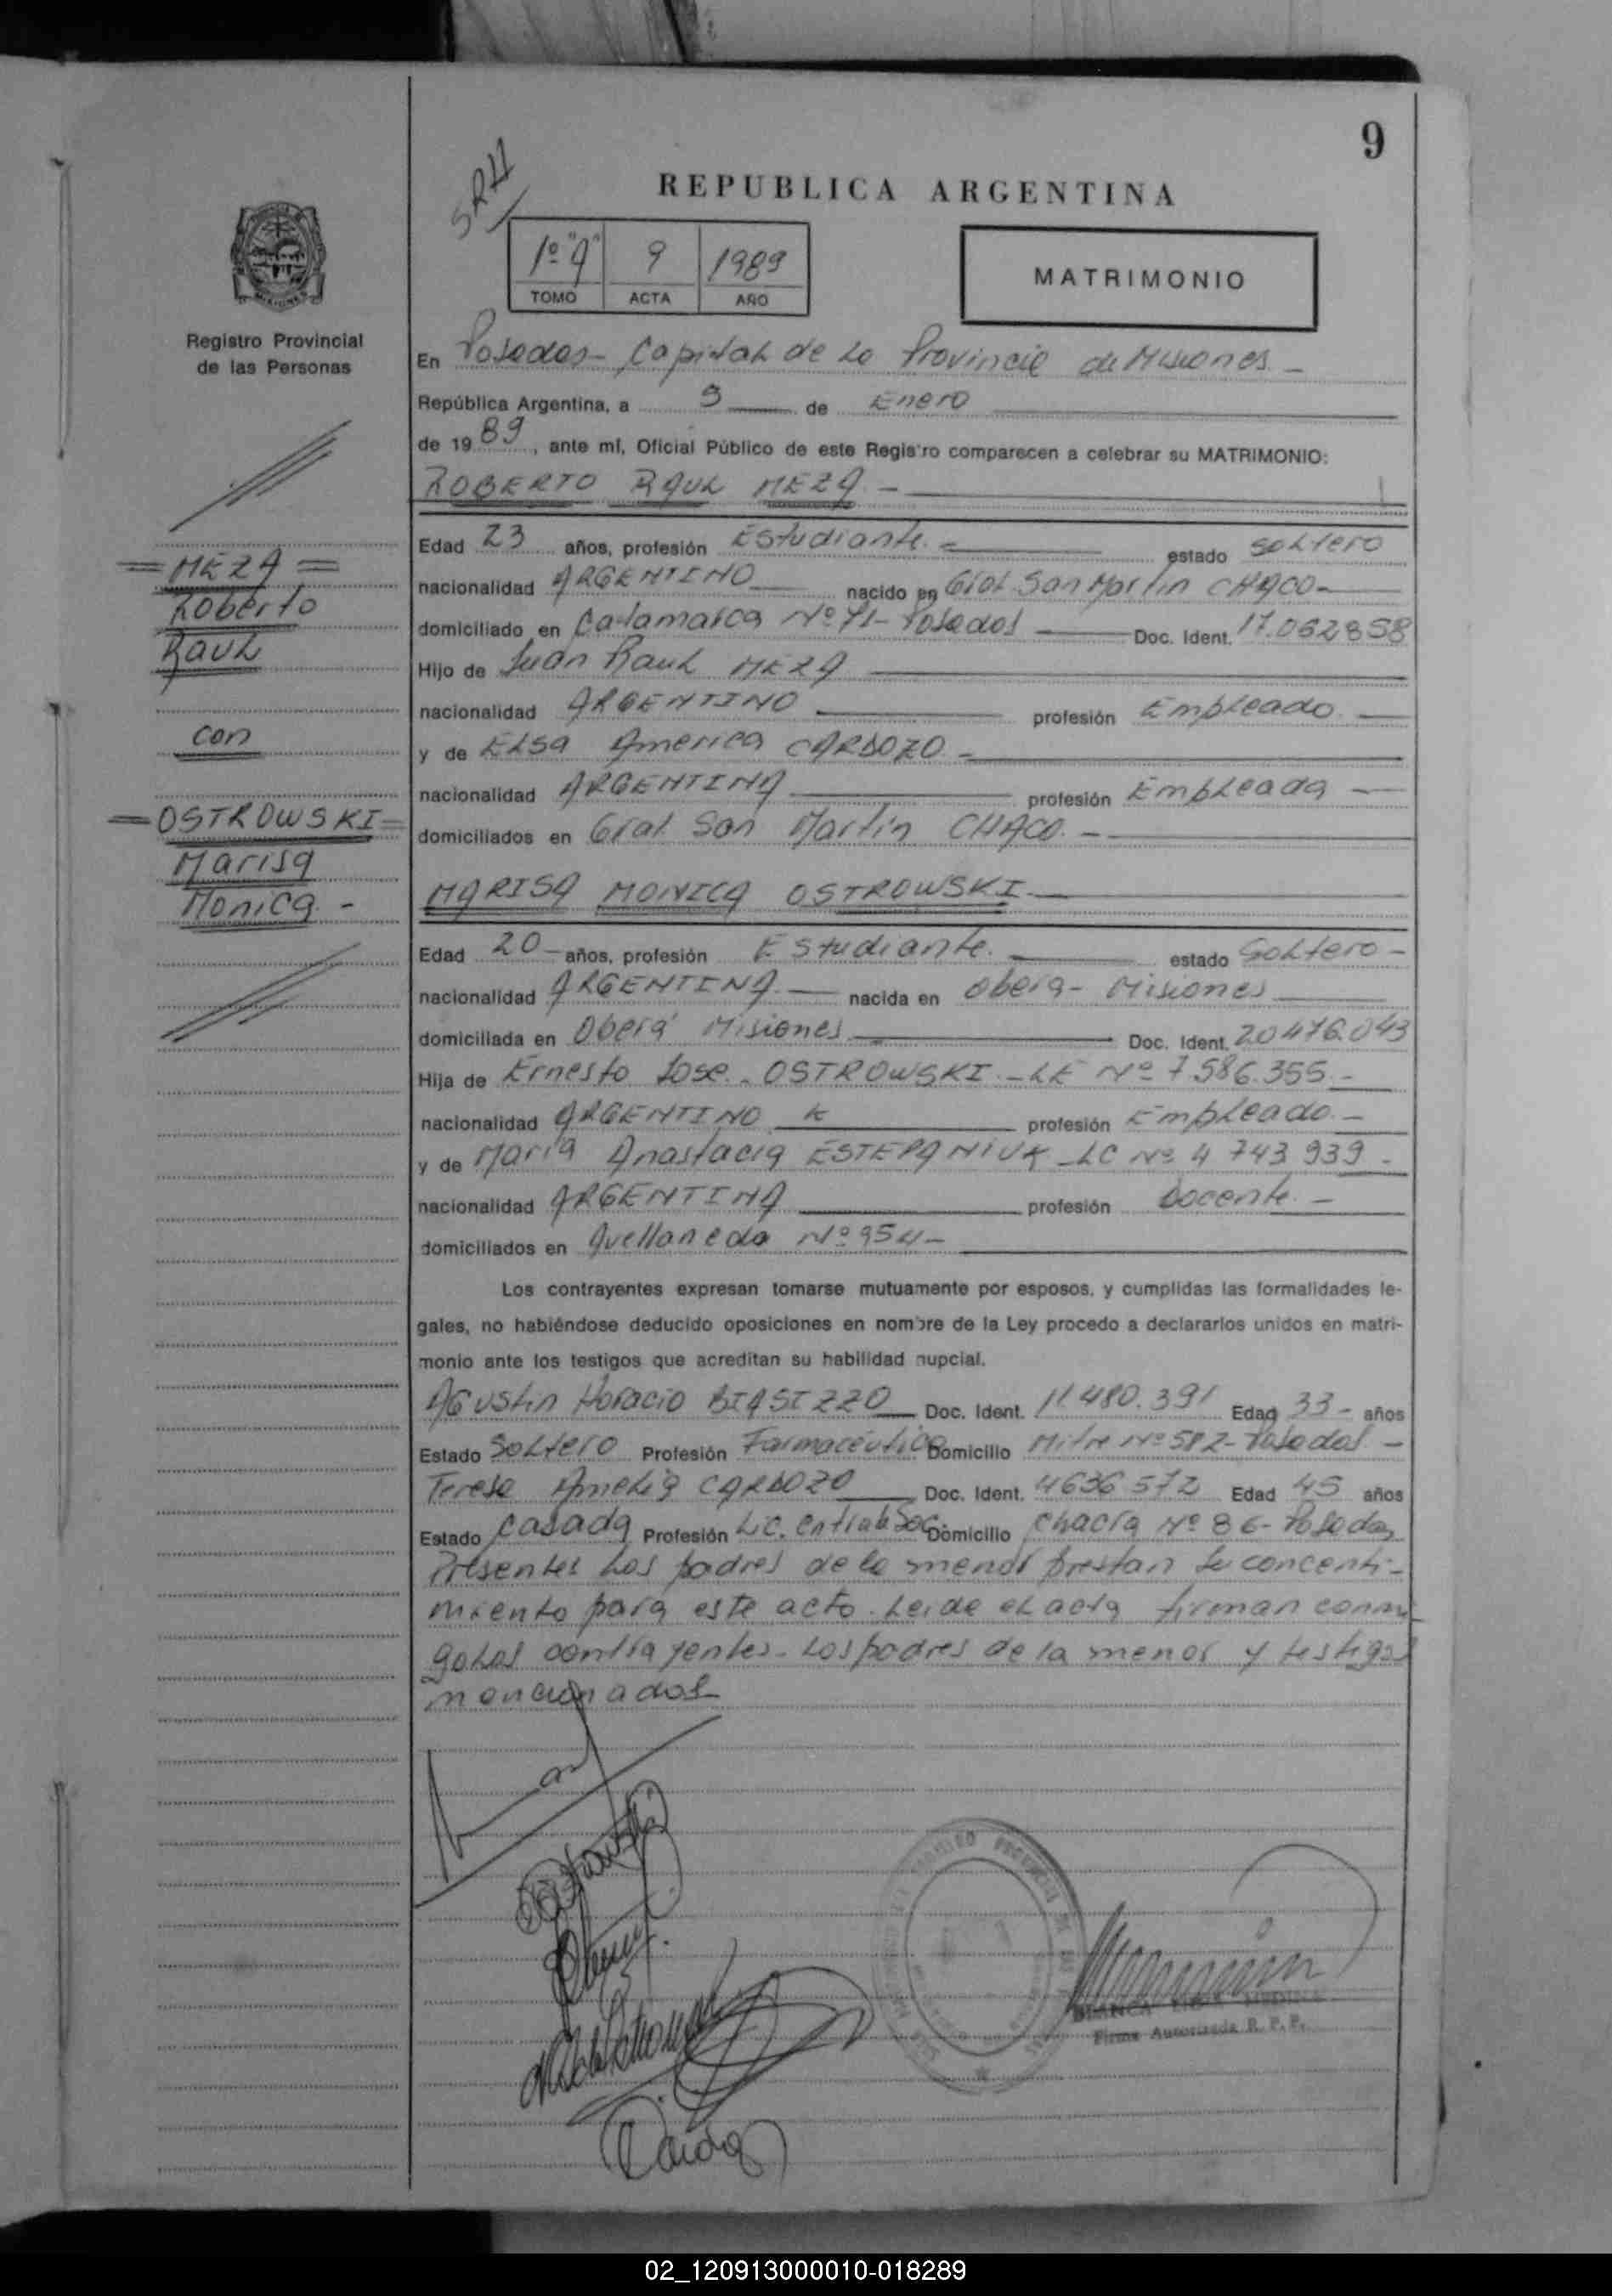 9
SRH
REPUBLICA ARGENTINA
1º "A" 9 1989
TOMO ACTA AÑO
MATRIMONIO
Registro Provincial
de las Personas
En Posadas - Capital de la Provincia de Misiones -
República Argentina, a 9 de Enero
de 19 89, ante mí, Oficial Público de este Registro comparecen a celebrar su MATRIMONIO:
ROBERTO RAUL MEZA -
Edad 23 años, profesión Estudiante. - estado soltero
nacionalidad ARGENTINO nacido en Gral. San Martín CHACO -
domiciliado en Catamarca Nº 71 - Posadas Doc. Ident. 17.062858
Hijo de Juan Raul MEZA
nacionalidad ARGENTINO profesión Empleado
y de Elsa America CARDOZO -
nacionalidad ARGENTINA profesión Empleada
domiciliados en Gral San Martin CHACO. -
= MEZA =
Roberto
Raul
con
= OSTROWSKI =
Marisa
Monica -
MARISA MONICA OSTROWSKI
Edad 20 - años, profesión Estudiante. estado Soltero -
nacionalidad ARGENTINA nacida en Obera - Misiones
domiciliada en Oberá Misiones Doc. Ident. 20476.043
Hija de Ernesto Jose - OSTROWSKI - LE Nº 7.586.355 -
nacionalidad ARGENTINO profesión Empleado. -
y de María Anastacia ESTEPANIUK LC Nº 4 743 939 -
nacionalidad ARGENTINA profesión Docente. -
domiciliados en Avellaneda Nº 954 -
Los contrayentes expresan tomarse mutuamente por esposos, y cumplidas las formalidades le-
gales, no habiéndose deducido oposiciones en nombre de la Ley procedo a declararlos unidos en matri-
monio ante los testigos que acreditan su habilidad nupcial.
Agustin Horacio BIASIZZO Doc. Ident. 11.480.391 Edad 33 - años
Estado Soltero Profesión Farmacéutico Domicilio Mitre Nº 582 - Posadas -
Teresa Amelia CARDOZO Doc. Ident. 4636 572 Edad 45 años
Estado Casada Profesión Lic. Domicilio Chacra Nº 86 - Posadas
Presentes Los padres de la menor prestan su concenti-
miento para este acto. Leida el acta firman conmi-
go Los contrayentes - Los padres de la menor y testigos
mencionados
MEDINA
Firma Autorizada R. P. P.
02_120913000010-018289